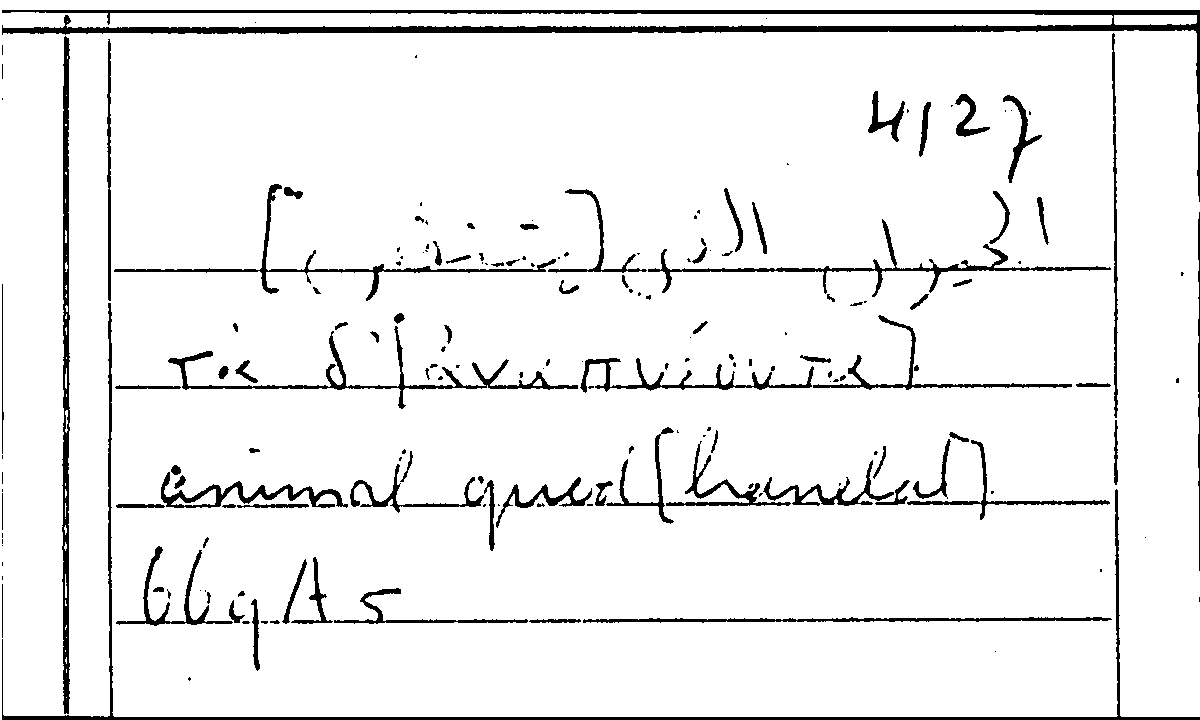 4,27
الحيوان الذى [يتنفس]
τὰ δ' [ἀναπνέοντα]
animal quod [hanelat]
669 A 5